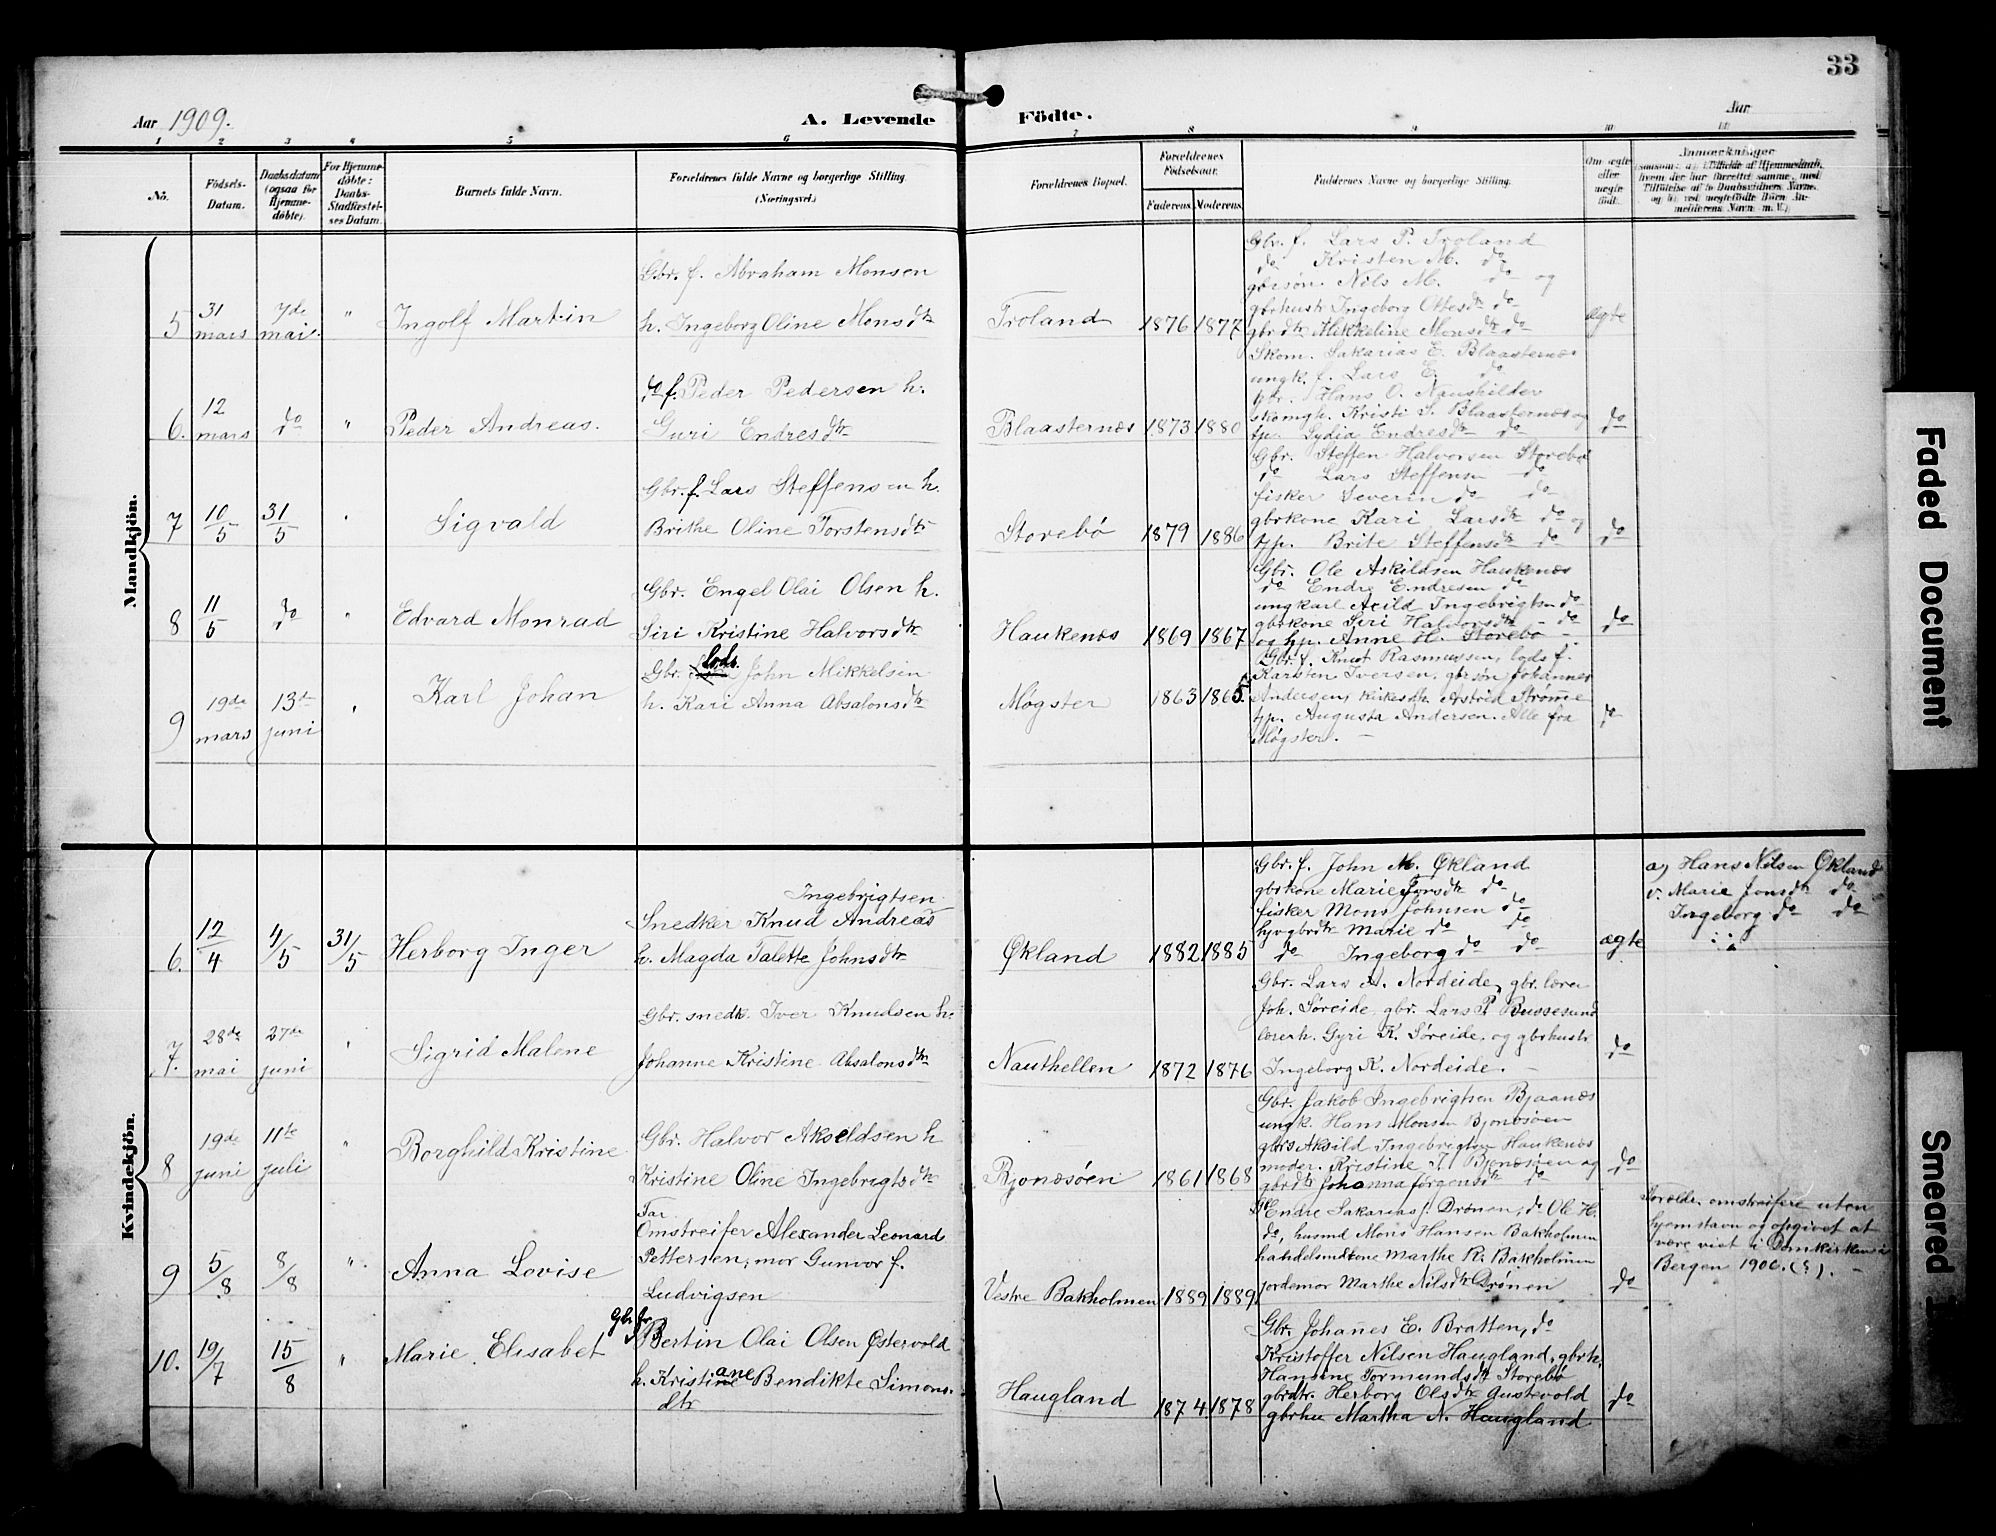 33
Aar 1909.
A. Levende Födte.
Aar
1 2 3 4 5 6 7 8 9 10 11
No.
Födsels-Datum.
Daabsdatum (ogsaa for Hjemme-döbte).
For Hjemme-döbte: Daabs-Stadfæstel-ses Datum.
Barnets fulde Navn.
Forældrenes fulde Navne og borgerlige Stilling. (Næringsvei.)
Forældrenes Bopæl.
Forældrenes Födselsaar.
Faderens. Moderens.
Faddernes Navne og borgerlige Stilling.
Om ægte eller uægte födt.
Anmærkninger
Mandkjön.
5 31 mars 7de mai. " Ingolf Martin
Gbr. f. Abraham Monsen
h. Ingeborg Oline Monsdtr
Troland 1876 1877
Gbr. f. Lars P. Troland
do Kristen M. do
gbrsön Nils M. do og
gbrhustr Ingeborg Ottesdtr do
gbrdtr Mikkeline Monsdtr do
ægte
6. 12 mars do " Peder Andreas.
do f. Peder Pedersen h.
Guri Endresdtr
Blaasternæs 1873 1880
Skom. Sakarias E. Blaasternæs
ungk. f. Lars E. do
gbr. Hans O. Naushilder
skomgh. Kristi S. Blaasternæs og
tp. Lydia Endresdtr do
do
7 10/5 31/5 " Sigvald
Gbr. f. Lars Steffensen h.
Brithe Oline Torstensdtr
Storebö 1879 1886
Gbr. Steffen Halvorsen Storebö
do Lars Steffensen do
fisker Severin do do
gbrkone Kari Larsdtr do og
tp. Brite Steffensdtr do
do
8 11/5 do " Edvard Monrad
Gbr. Engel Olai Olsen h.
Siri Kristine Halvorsdtr
Haukenæs 1869 1867
Gbr. Ole Askildsen Haukenæs
do Endre Endresen do
ungkarl Askild Ingebrigtsen do
gbrkone Siri Halvorsdtr - do
og hp. Anne H. Storebö -
do
9 19de mars 13de juni " Karl Johan
Gbr. lods. John Mikkelsen
h. Kari Anna Absalonsdtr
Møgster 1863 1865.
Gbr. f. Knut Rasmussen, lods f.
Karsten Iversen, gbrsön Johannes
Andersen, kirkesth. Astrid Strømme
tp. Augusta Andersen. Alle fra
Møgster. -
do
Kvindekjön.
6. 12/4 4/5 31/5 Herborg Inger
Ingebrigtsen
Snedker Knud Andreas
h. Magda Talette Johnsdtr
Økland 1882 1885
Gbr. f. John M. Økland
gbrkone Marie Jonsdtr do
fisker Mons Johnsen do
hpvgbrdtr Marie do do
do Ingeborg do do
ægte
a) Hans Nilsen Økland
v. Marie Jonsdtr do
Ingeborg do do
7. 28de mai 27de juni " Sigrid Malene
Gbr. snedk. Iver Knudsen h.
Johanne Kristine Absalonsdtr
Nauthellen 1872 1876
Gbr. Lars A. Nordeide, gbr. lærer
Joh. Søreide, gbr. Lars P. Bussesund
lærerh. Gyri K. Søreide, og gbrhustr
Ingeborg K. Nordeide. -
do
8 19de juni 11te juli " Borghild Kristine
Gbr. Halvor Akseldsen h
Kristine Oline Ingebrigtsdtr
Bjonæsöen 1861 1868
Gbr. Jakob Ingebrigtsen Bjaanæs
ungk. Hans Monsen Bjonæsöen
gbrs Aksild Ingebrigtsen Haukenæs
moder. Kristine I. Bjonæsöen og
gbrdtr Johanna Jørgensdtr do
do
9 5/8 8/8 ". Anna Lovise
Far
Omstreifer Alexander Leonard
Pettersen, mor Gunvor f.
Ludvigsen
Vestre Bakholmen 1889 1889
Endre Sakarias f. Drönen, do Ole H.
do, husmd Mons Hansen Bakholmen
handelsmkone Marthe R. Bakholmen
jordemor Marthe Nilsdtr Drönen
do
Foreldr. omstreifere uten
hjemstavn og opgivet at
være viet i Domkirken i
Bergen 1906. (?). -
10. 19/7 15/8 " Marie Elisabet
Gbr. f.
Bertin Olai Olsen Østervold
h. Kristiane Bendikte Simons-
dtr
Haugland 1874 1878
Gbr. Johannes E. Bratten, do
Kristoffer Nilsen Haugland, gbrh.
Hansine Tormundsdtr Storebö
gbrdtr. Herborg Olsdtr Austevold
gbrhu Martha N. Haugland
do
Faded Document
Smeared